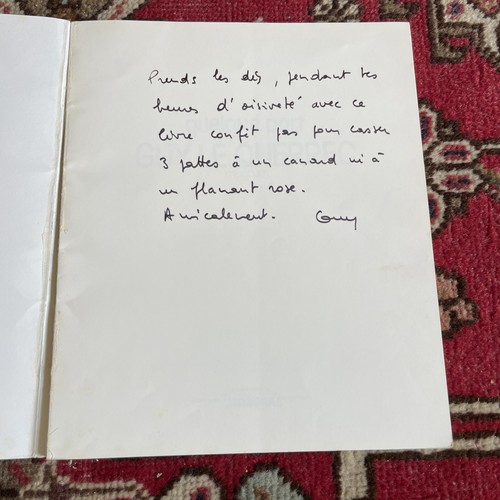 Prends les dés, pendant tes
heures d'oisiveté avec ce
livre confit pas pour casser
3 pattes à un canard ni à
un flamant rose.
Amicalement. Guy
GUY LE QUERREC